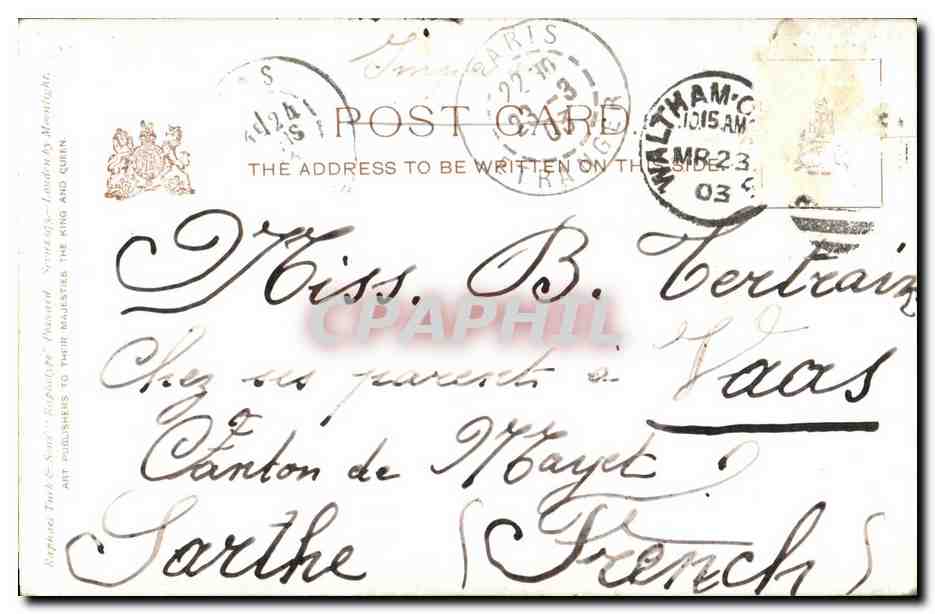 PARIS
22 30
23 - 3
03
ETRANGER
24
WALTHAM
10.15 AM
MR 23
03
POST CARD
THE ADDRESS TO BE WRITTEN ON THIS SIDE
Miss. B. Tertrain
Chez ses parents à Vaas
Canton de Mayet
Sarthe (French)
CPAPHIL
Raphael Tuck & Sons' "Raphotype" Postcard London by Moonlight.
ART PUBLISHERS TO THEIR MAJESTIES THE KING AND QUEEN.